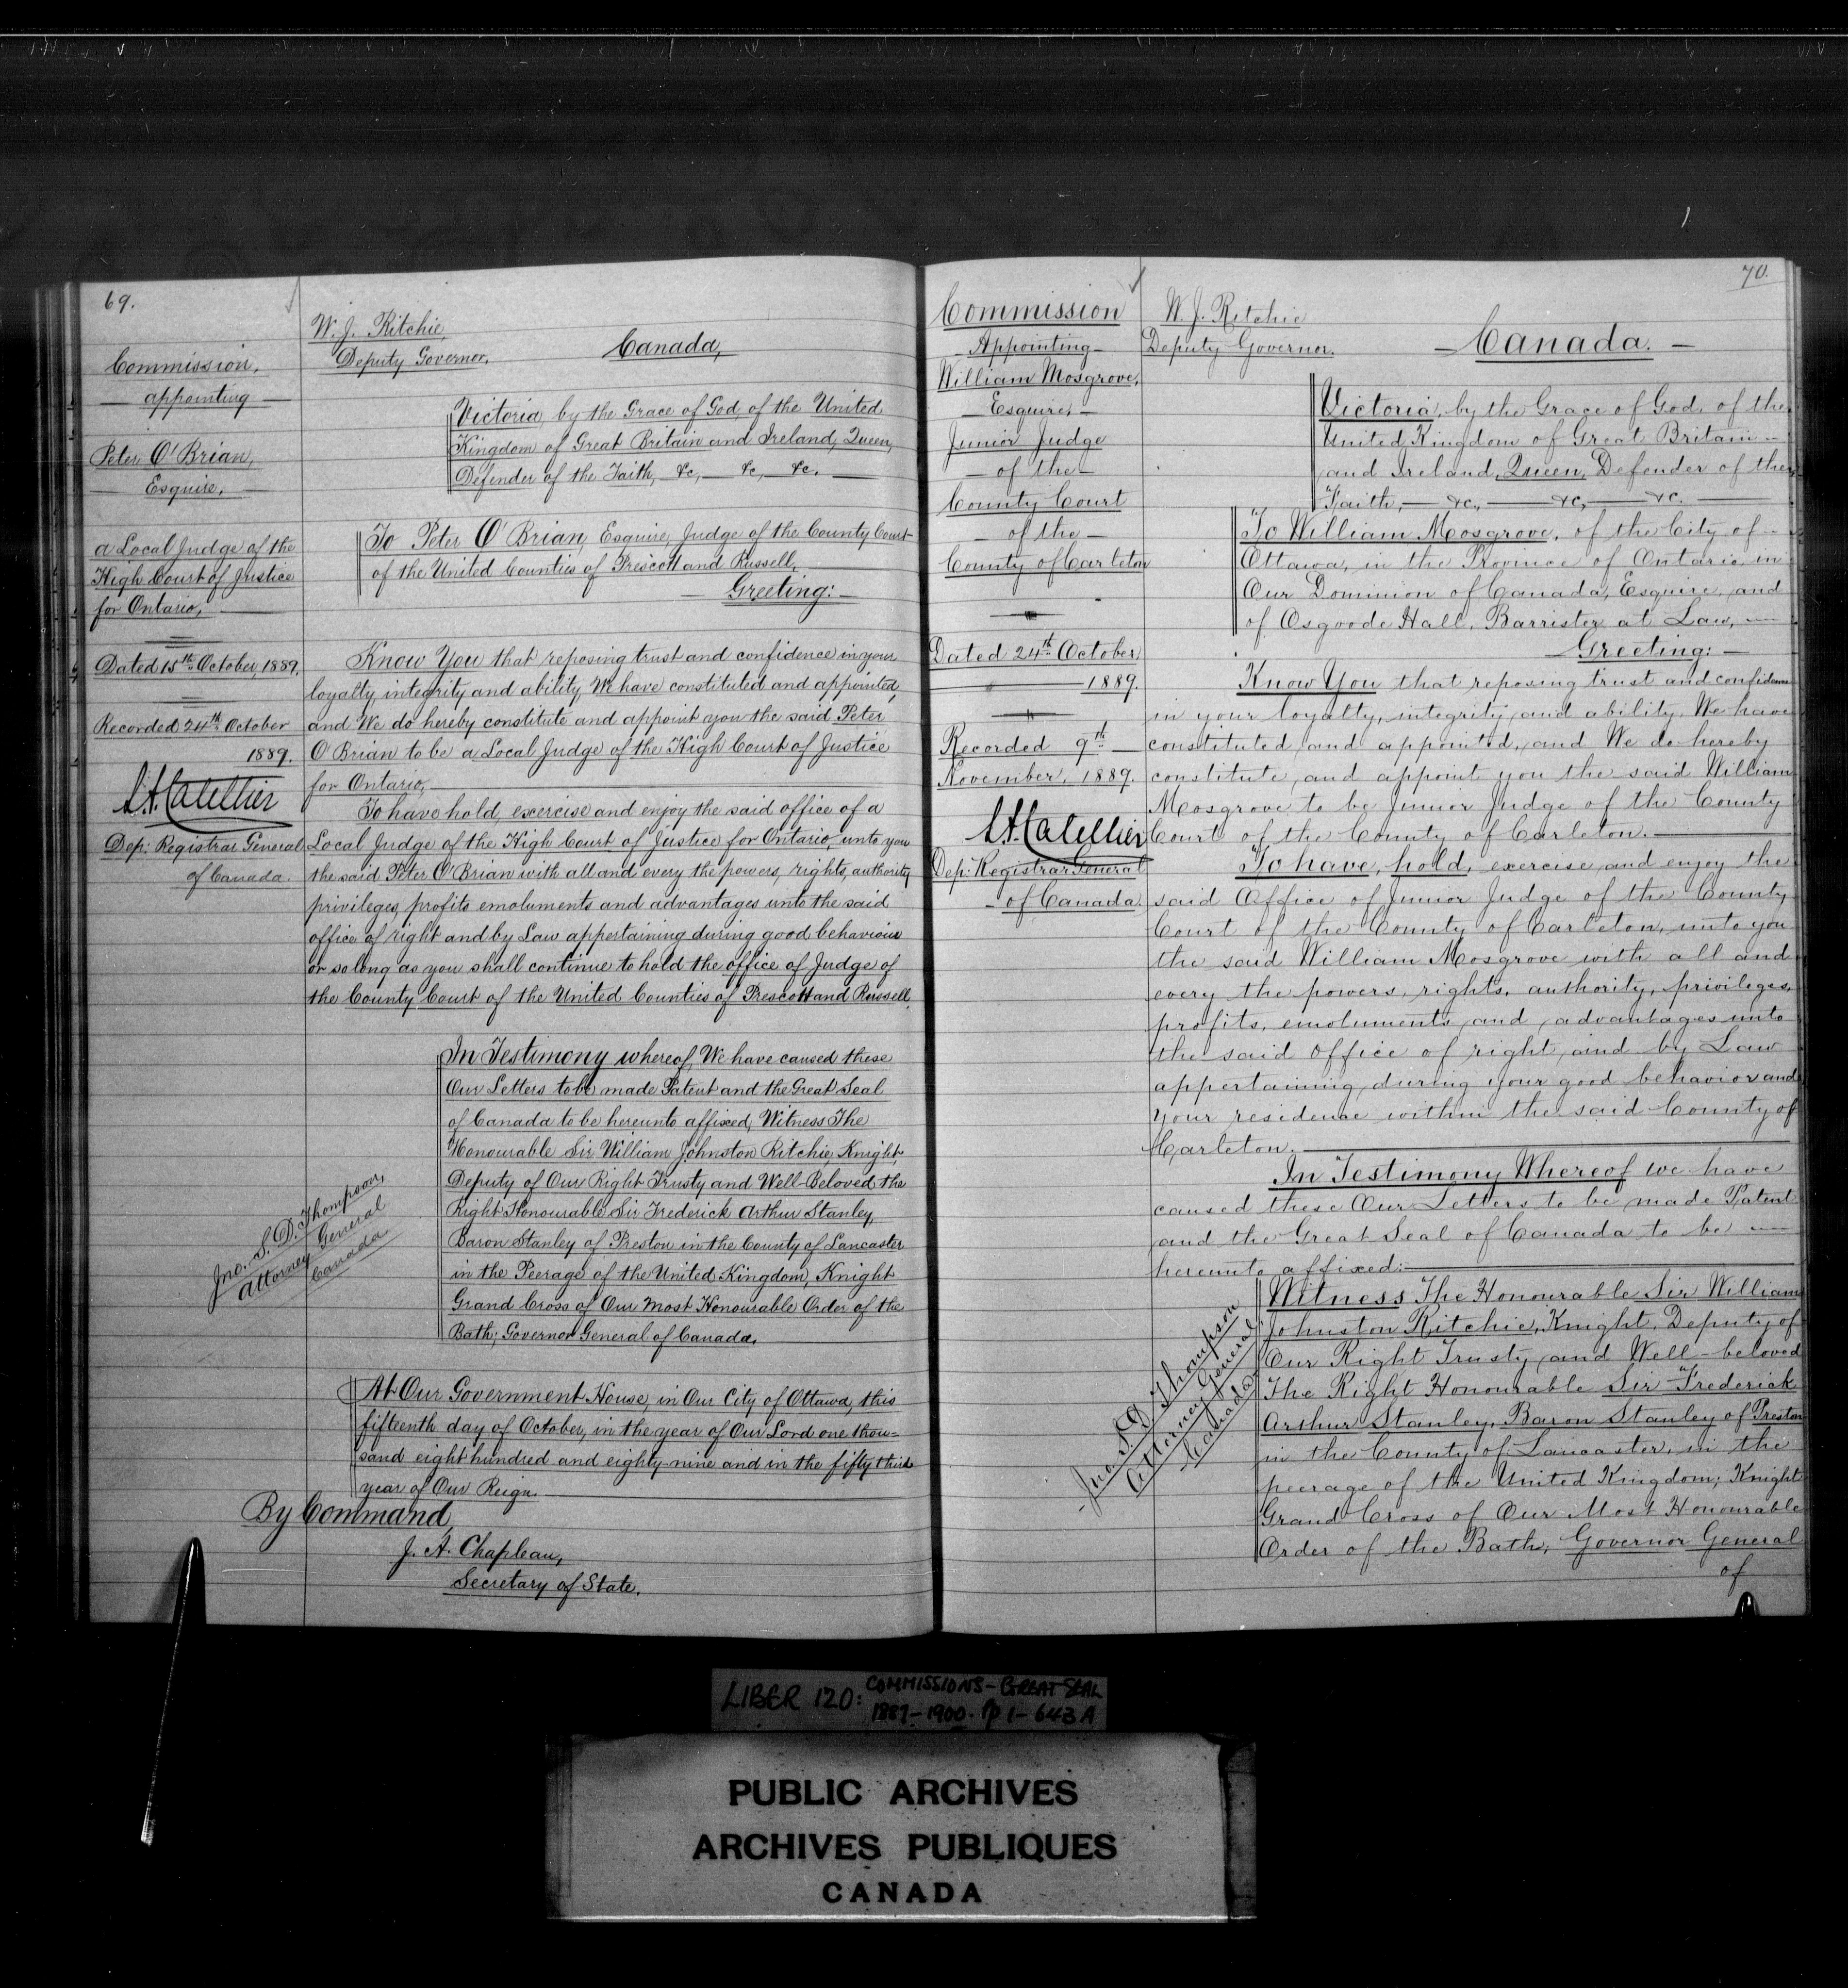 69.
Commission,
appointing
Peter O'Brian,
Esquire,
a Local Judge of the
High Court of Justice
for Ontario,
Dated 15th October, 1889.
Recorded 24th October
1889.
L.A. Catellier
Dep: Registrar General
of Canada.
W. J. Ritchie,
Deputy Governor.
Canada,
Victoria, by the Grace of God, of the United
Kingdom of Great Britain and Ireland, Queen,
Defender of the Faith, &c, — &c, — &c. —
To Peter O'Brian, Esquire, Judge of the County Court
of the United Counties of Prescott and Russell,
— Greeting: —
Know You that reposing trust and confidence in your
loyalty, integrity and ability, We have constituted and appointed,
and We do hereby constitute and appoint you the said Peter
O'Brian to be a Local Judge of the High Court of Justice
for Ontario,
To have hold, exercise and enjoy the said office of a
Local Judge of the High Court of Justice for Ontario, unto you
the said Peter O'Brian with all and every the powers, rights, authority
privileges, profits emoluments and advantages unto the said
office of right and by Law appertaining during good behaviour
or so long as you shall continue to hold the office of Judge of
the County Court of the United Counties of Prescott and Russell.
In Testimony whereof, We have caused these
Our Letters to be made Patent and the Great Seal
of Canada to be hereunto affixed, Witness The
Honourable Sir William Johnston Ritchie, Knight,
Deputy of Our Right Trusty and Well-Beloved the
Right Honourable Sir Frederick Arthur Stanley,
Baron Stanley of Preston in the County of Lancaster
in the Peerage of the United Kingdom, Knight
Grand Cross of Our Most Honourable Order of the
Bath; Governor General of Canada.
Jno. S. D. Thompson,
Attorney General
Canada.
At Our Government House, in Our City of Ottawa, this
fifteenth day of October, in the year of Our Lord one thou=
sand eight hundred and eighty-nine and in the fifty third
year of Our Reign.
By Command,
J. A. Chapleau,
Secretary of State.
70.
Commission
— Appointing —
William Mosgrove,
— Esquire, —
Junior Judge
— of the —
County Court
— of the —
County of Carleton
Dated 24th October
1889.
Recorded 9th
November, 1889.
L.A. Catellier
Dep: Registrar General
— of Canada.
W. J. Ritchie
Deputy Governor.
— Canada. —
Victoria, by the Grace of God, of the
United Kingdom of Great Britain —
and Ireland, Queen, Defender of the
Faith, — &c, — &c, — &c. —
To William Mosgrove, of the City of —
Ottawa, in the Province of Ontario, in
Our Dominion of Canada, Esquire, and
of Osgoode Hall, Barrister at Law, —
Greeting: —
Know You that reposing trust and confidence
in your loyalty, integrity and ability, We have
constituted and appointed, and We do hereby
constitute, and appoint you the said William
Mosgrove to be Junior Judge of the County
Court of the County of Carleton. —
To have, hold, exercise and enjoy the
said Office of Junior Judge of the County
Court of the County of Carleton, unto you
the said William Mosgrove with all and
every the powers, rights, authority, privileges,
profits, emoluments and advantages unto
the said Office of right and by Law
appertaining, during your good behavior and
your residence within the said County of
Carleton. —
In Testimony Whereof we have
caused these Our Letters to be made Patent
and the Great Seal of Canada to be —
hereunto affixed: —
Witness The Honourable Sir William
Johnston Ritchie, Knight, Deputy of
Our Right Trusty and Well-beloved
The Right Honourable Sir Frederick
Arthur Stanley, Baron Stanley of Preston
in the County of Lancaster, in the
peerage of the United Kingdom; Knight
Grand Cross of Our Most Honourable
Order of the Bath; Governor General
of
Jno. S. D. Thompson
Attorney General
Canada
LIBER 120: COMMISSIONS - GREAT SEAL
1889-1900. pp 1-643A
PUBLIC ARCHIVES
ARCHIVES PUBLIQUES
CANADA